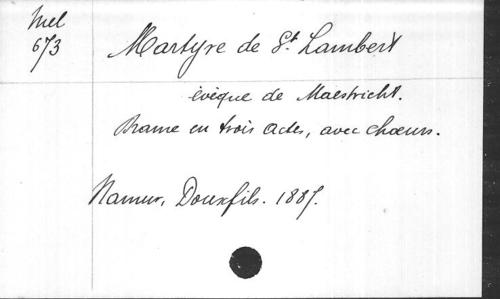 Mel
673
Martyre de St. Lambert
évèque de Maestricht.
Drame en trois actes, avec chœurs.
Namur, Douxfils. 1887.